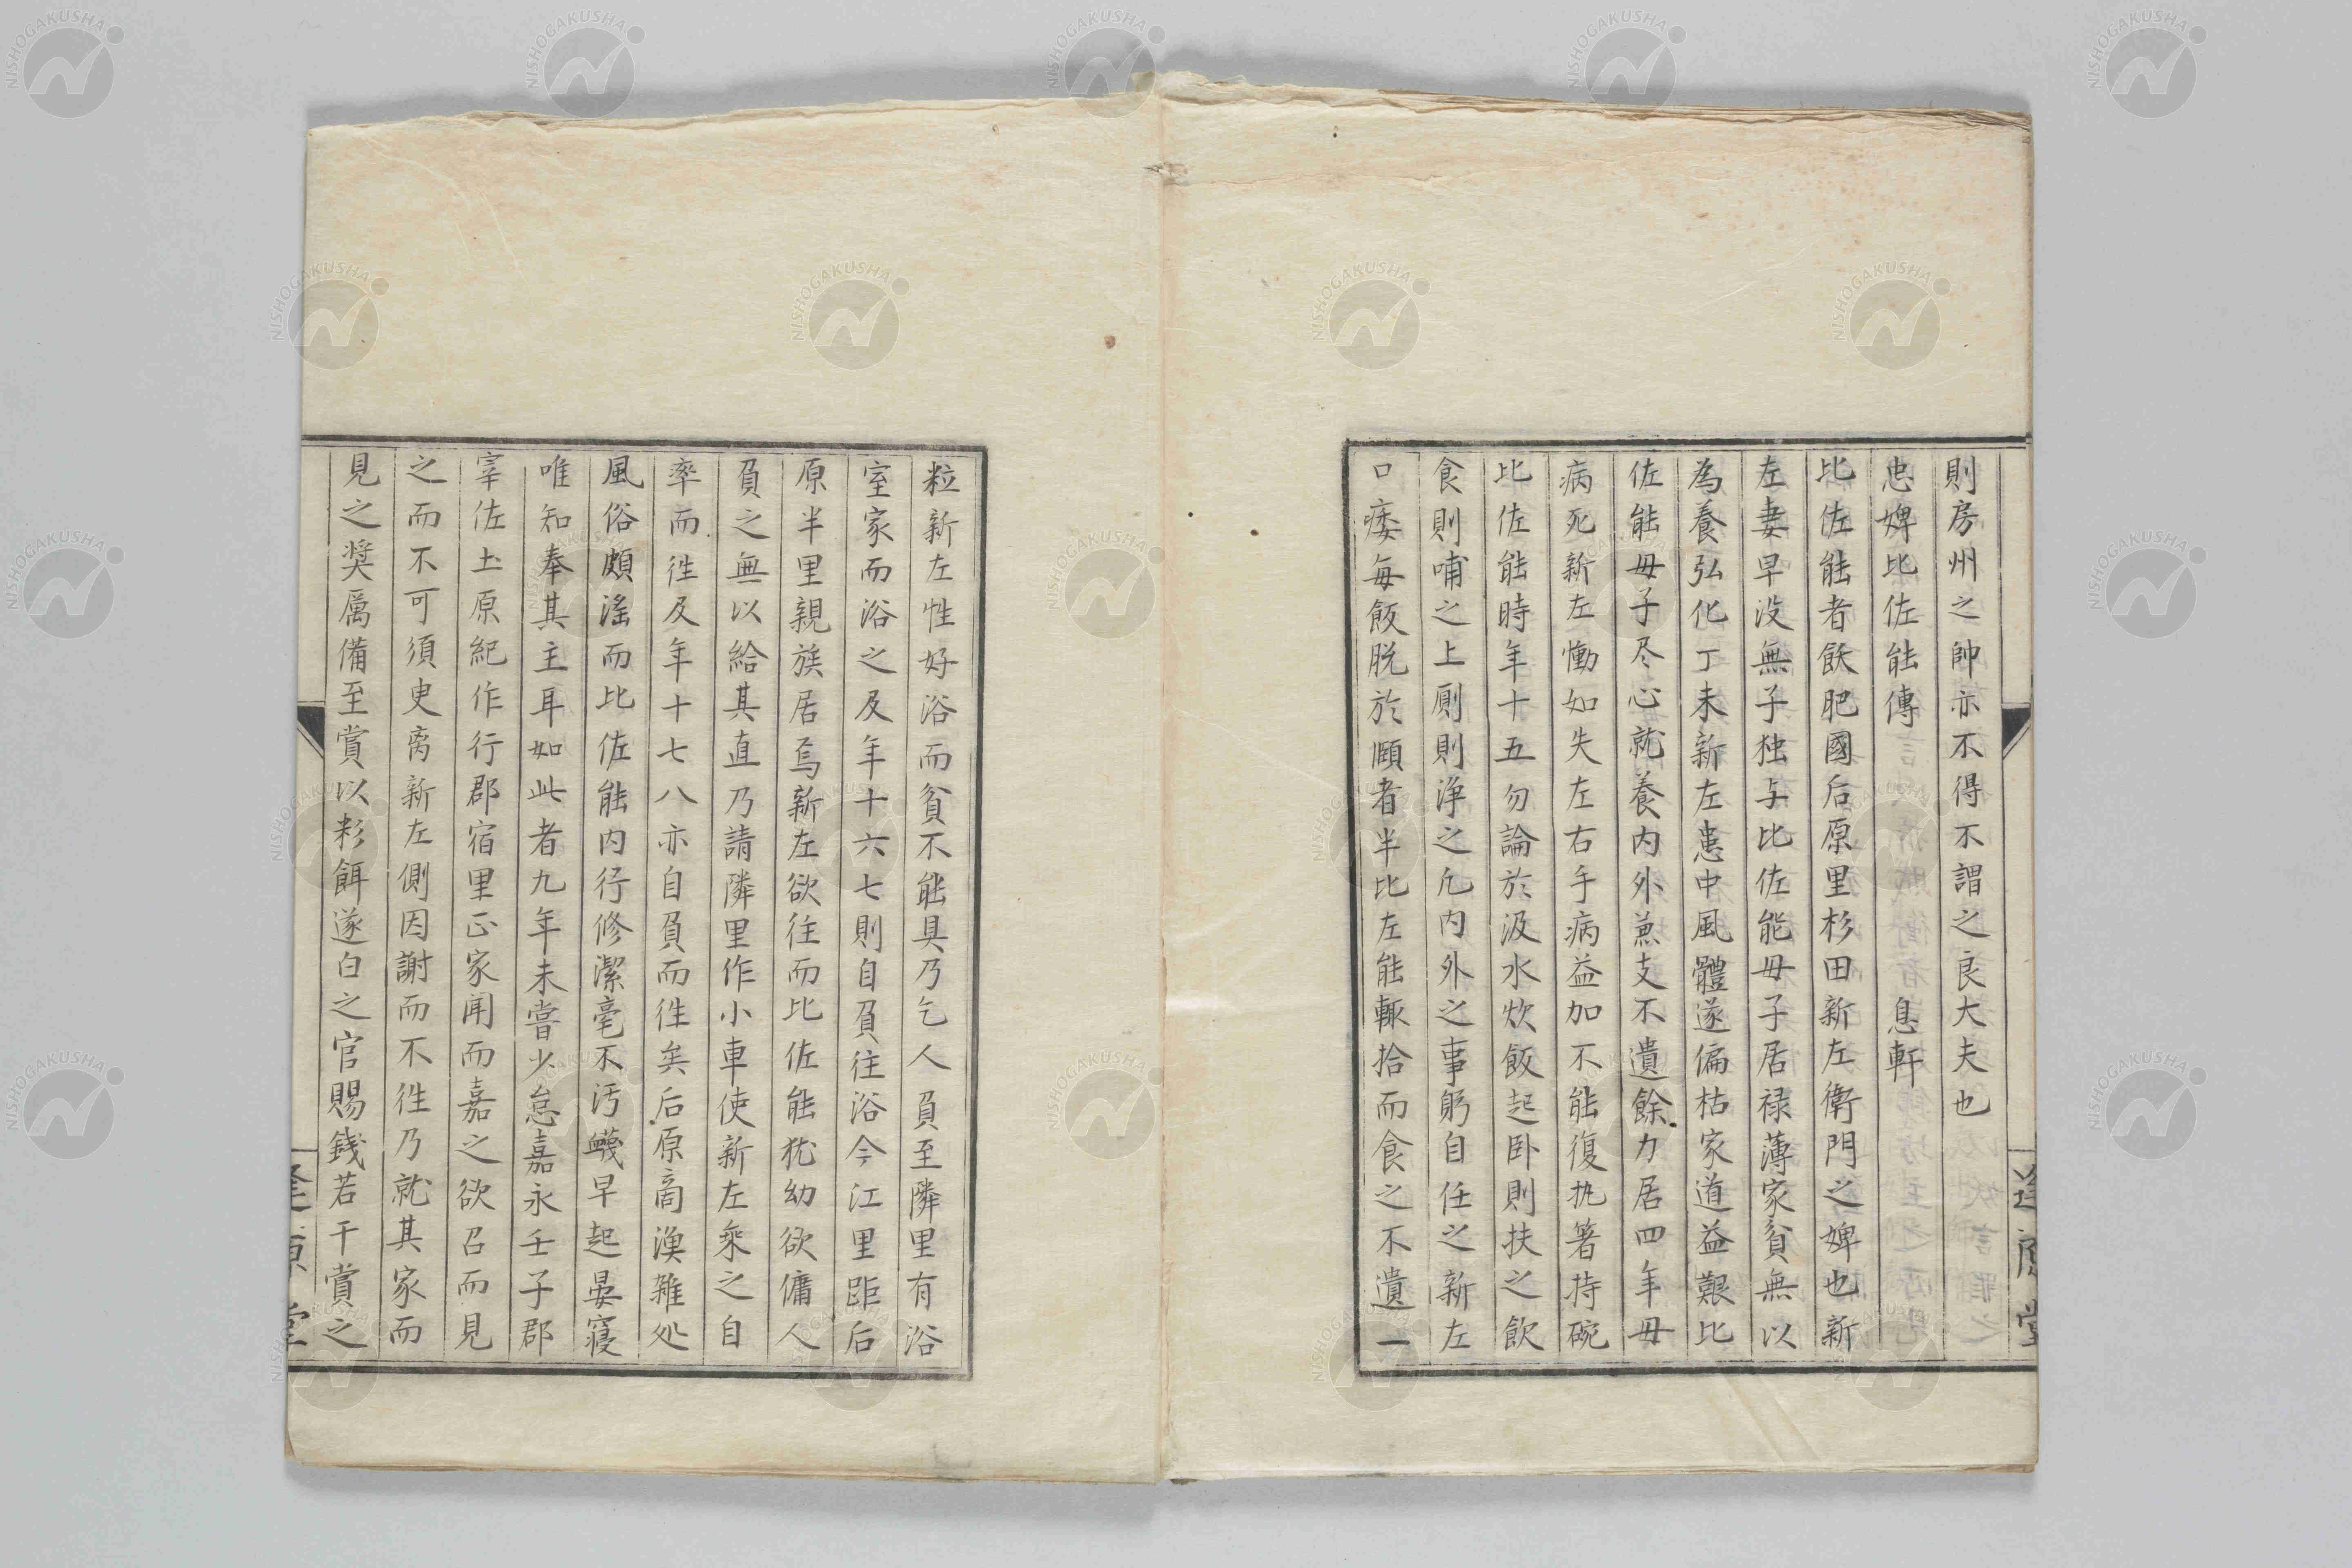 則房州之帥亦不得不謂之良大夫也
忠婢比佐能傳　息軒
比佐能者飫肥國后原里杉田新左衛門之婢也新
左妻早沒無子独与比佐能母子居禄薄家貧無以
為養弘化丁未新左患中風體遂偏枯家道益艱比
佐能母子尽心就養内外兼支不遺餘力居四年母
病死新左慟如失左右手病益加不能復执箸持碗
比佐能時年十五勿論於汲水炊飯起卧則扶之飲
食則哺之上厠則淨之凢内外之事躬自任之新左
口痿每飯脱於頤者半比左能輙拾而食之不遺一
粒新左性好浴而貧不能具乃乞人負至隣里有浴
室家而浴之及年十六七則自負往浴今江里距后
原半里親族居焉新左欲往而比佐能犹幼欲傭人
負之無以給其直乃請隣里作小車使新左乘之自
率而徃及年十七八亦自負而徃矣后原商漁雜处
風俗頗滛而比佐能内行修潔毫不汚衊早起晏寢
唯知奉其主耳如此者九年未嘗少怠嘉永壬子郡
宰佐土原紀作行郡宿里正家闻而嘉之欲召而見
之而不可須臾离新左側因謝而不徃乃就其家而
見之奨厲備至賞以粉餌遂白之官賜錢若干賞之